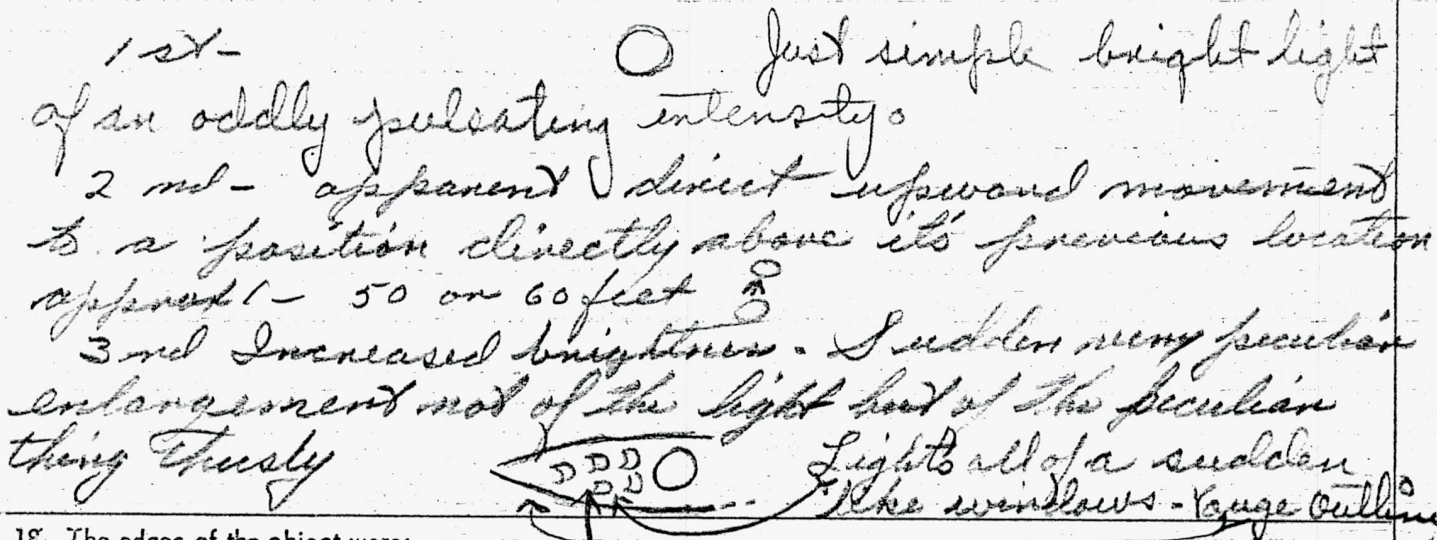 1st- Just simple bright light
of an oddly pulsating intensity.
2nd- apparent direct upward movement
to a position directly above its previous location
approx- 50 or 60 feet
3rd Increased brightness. Sudden very peculiar
enlargement not of the light but of the peculiar
thing Thusly
Lights all of a sudden
like windows - Vauge Outline
18. The edges of the object were: